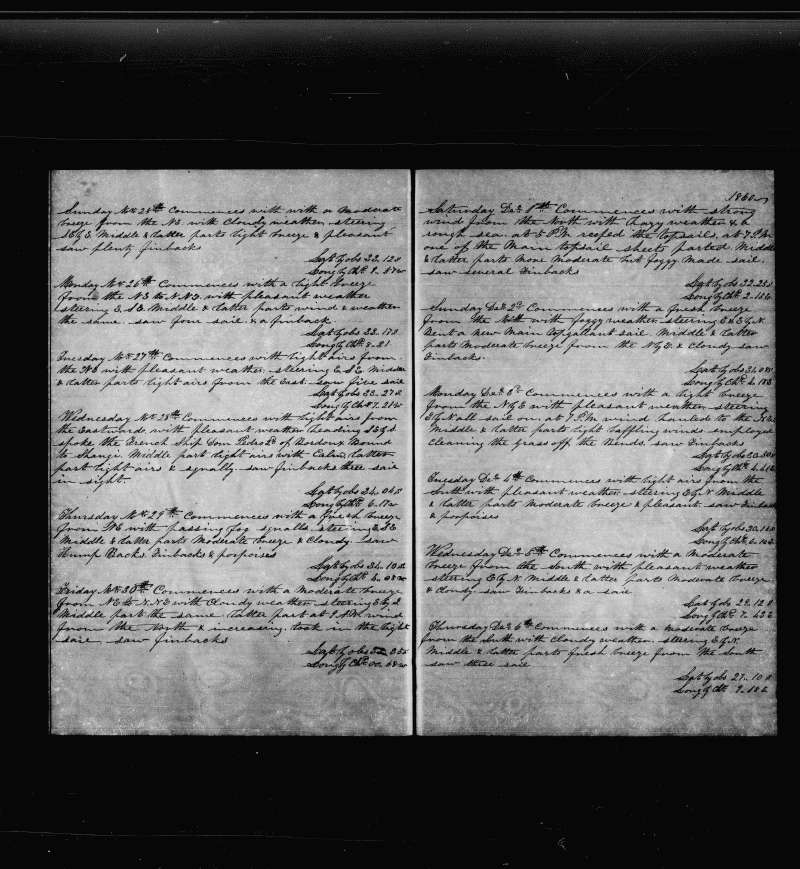 Sunday Nov 25th Commences with with a moderate
breeze from the NE with Cloudy weather steering
SE by E. Middle & latter parts light breeze & pleasant
saw plenty finbacks
Lat by obs 33. 12 S
Long by Chr 9. 57 W
Monday Nov 26th Commences with a light breeze
from the NE to NNE with pleasant weather
steering E. SE. Middle & latter parts wind & weather
the same. saw four sail & a finback
Lat by obs 33. 17 S
Long by Chr 8. 31
Tuesday Nov 27th Commences with light airs from
the NE with pleasant weather. steering E SE Middle
& latter parts light airs from the East. saw five sail
Lat by obs 33. 27 S
Long by Chr 7. 21 W
Wednesday Nov 28th Commences with light airs from
the Eastward, with pleasant weather heading SE by S
spoke the French Ship Dom Pedro 2d of Bordoux Bound
to Shangi. Middle part light airs with Calm. latter
part light airs & squally. saw finbacks three sail
in sight
Lat by obs 34. 04 S
Long by Chr 6. 17 W
Thursday Nov 29th Commences with a fresh breeze
from NE with passing fog squalls steering E SE
Middle & latter parts Moderate breeze & Cloudy. saw
Hump Backs Finbacks & porpoises
Lat by obs 34. 10 S
Long by Chr 3. 08 W
Friday Nov 30th Commences with a Moderate breeze
from NE to NNE with Cloudy weather steering E by S
Middle part the same. latter part at 9 AM wind
from the North & increasing. took in the light
sail saw finbacks
Lat by obs 33 S
Long by Chr 00. 58 W
1860
Saturday Dec 1st Commences with strong
wind from the North with hazy weather & a
rough sea. at 5 PM reefed the topsails, at 7 PM
one of the Main topsail sheets parted. Middle
& latter parts More Moderate but foggy. Made sail.
saw several Finbacks
Lat by obs 32. 25 S
Long by Chr 2. 15 E
Sunday Dec 2d Commences with a fresh breeze
from the North with foggy weather steering E & E by N.
Bent a new Main topgallant sail. Middle & latter
parts Moderate breeze from the N by E & Cloudy saw
Finbacks.
Lat by obs 31. 08 S
Long by Chr 4. 18 E
Monday Dec 3d Commences with a light breeze
from the N by E with pleasant weather steering
E by N all sail on. at 7 PM wind hauled to the
Middle & latter parts light baffling winds employed
cleaning the grass off the Bends. saw Finbacks
Lat by obs 30. 50 S
Long by Chr 4. 41 E
Tuesday Dec 4th Commences with light airs from the
South with pleasant weather. steering E by N Middle
& latter parts moderate breeze & pleasant saw finbacks
& porpoises
Lat by obs 30. 16 S
Long by Chr 6. 10 E
Wednesday Dec 5th Commences with a Moderate
breeze from the South with pleasant weather
steering E by N. Middle & latter parts Moderate breeze
& Cloudy. saw Finbacks & a sail
Lat by obs 29. 12 S
Long by Chr 7. 43 E
Thursday Dec 6th Commences with a moderate breeze
from the South with Cloudy weather. steering E by N.
Middle & latter parts fresh breeze from the South
saw three sail
Lat by obs 27. 10 S
Long by Chr 9. 18 E